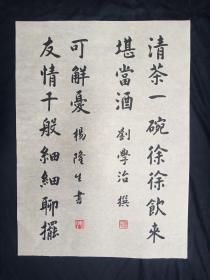 清茶一碗徐徐飲來
堪當酒 劉學治 撰
友情千般細細聊擺
可解憂 楊隆生書